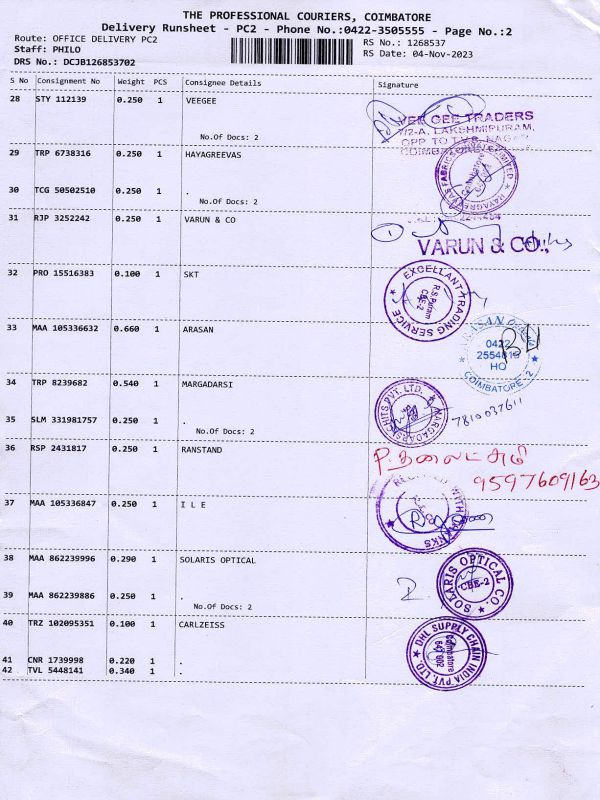 THE PROFESSIONAL COURIERS, COIMBATORE
Delivery Runsheet - PC2 - Phone No.:0422-3505555 - Page No.:2
Route: OFFICE DELIVERY PC2
RS No.: 1268537
Staff: PHILO
RS Date: 04-Nov-2023
DRS No.: DCJB126853702
S No Consignment No Weight PCS Consignee Details Signature
28 STY 112139 0.250 1 VEEGEE
No.Of Docs: 2
VEE GEE TRADERS
7/2-A, LAKSHMIPURAM,
OPP TO T.V.S. NAGAR
29 TRP 6738316 0.250 1 HAYAGREEVAS
30 TCG 50502510 0.250 1 .
No.Of Docs: 2
31 RJP 3252242 0.250 1 VARUN & CO
VARUN & CO.,
32 PRO 15516383 0.100 1 SKT
EXCELLANT TRADING SERVICE
R.S.Puram
CBE-2
33 MAA 105336632 0.660 1 ARASAN
0422
2554819
HO
COIMBATORE-2
34 TRP 8239682 0.540 1 MARGADARSI
MARGADARSI CHITS PVT. LTD.
7810037611
35 SLM 331981757 0.250 1 .
No.Of Docs: 2
36 RSP 2431817 0.250 1 RANSTAND
9597609163
37 MAA 105336847 0.250 1 I L E
RECEIVED WITH THANKS
38 MAA 862239996 0.290 1 SOLARIS OPTICAL
SOLARIS OPTICAL CO.
CBE-2
39 MAA 862239886 0.250 1 .
No.Of Docs: 2
40 TRZ 102095351 0.100 1 CARLZEISS
DHL SUPPLY CHAIN INDIA PVT. LTD.
Coimbatore
641 902
41 CNR 1739998 0.220 1 .
42 TVL 5448141 0.340 1 .